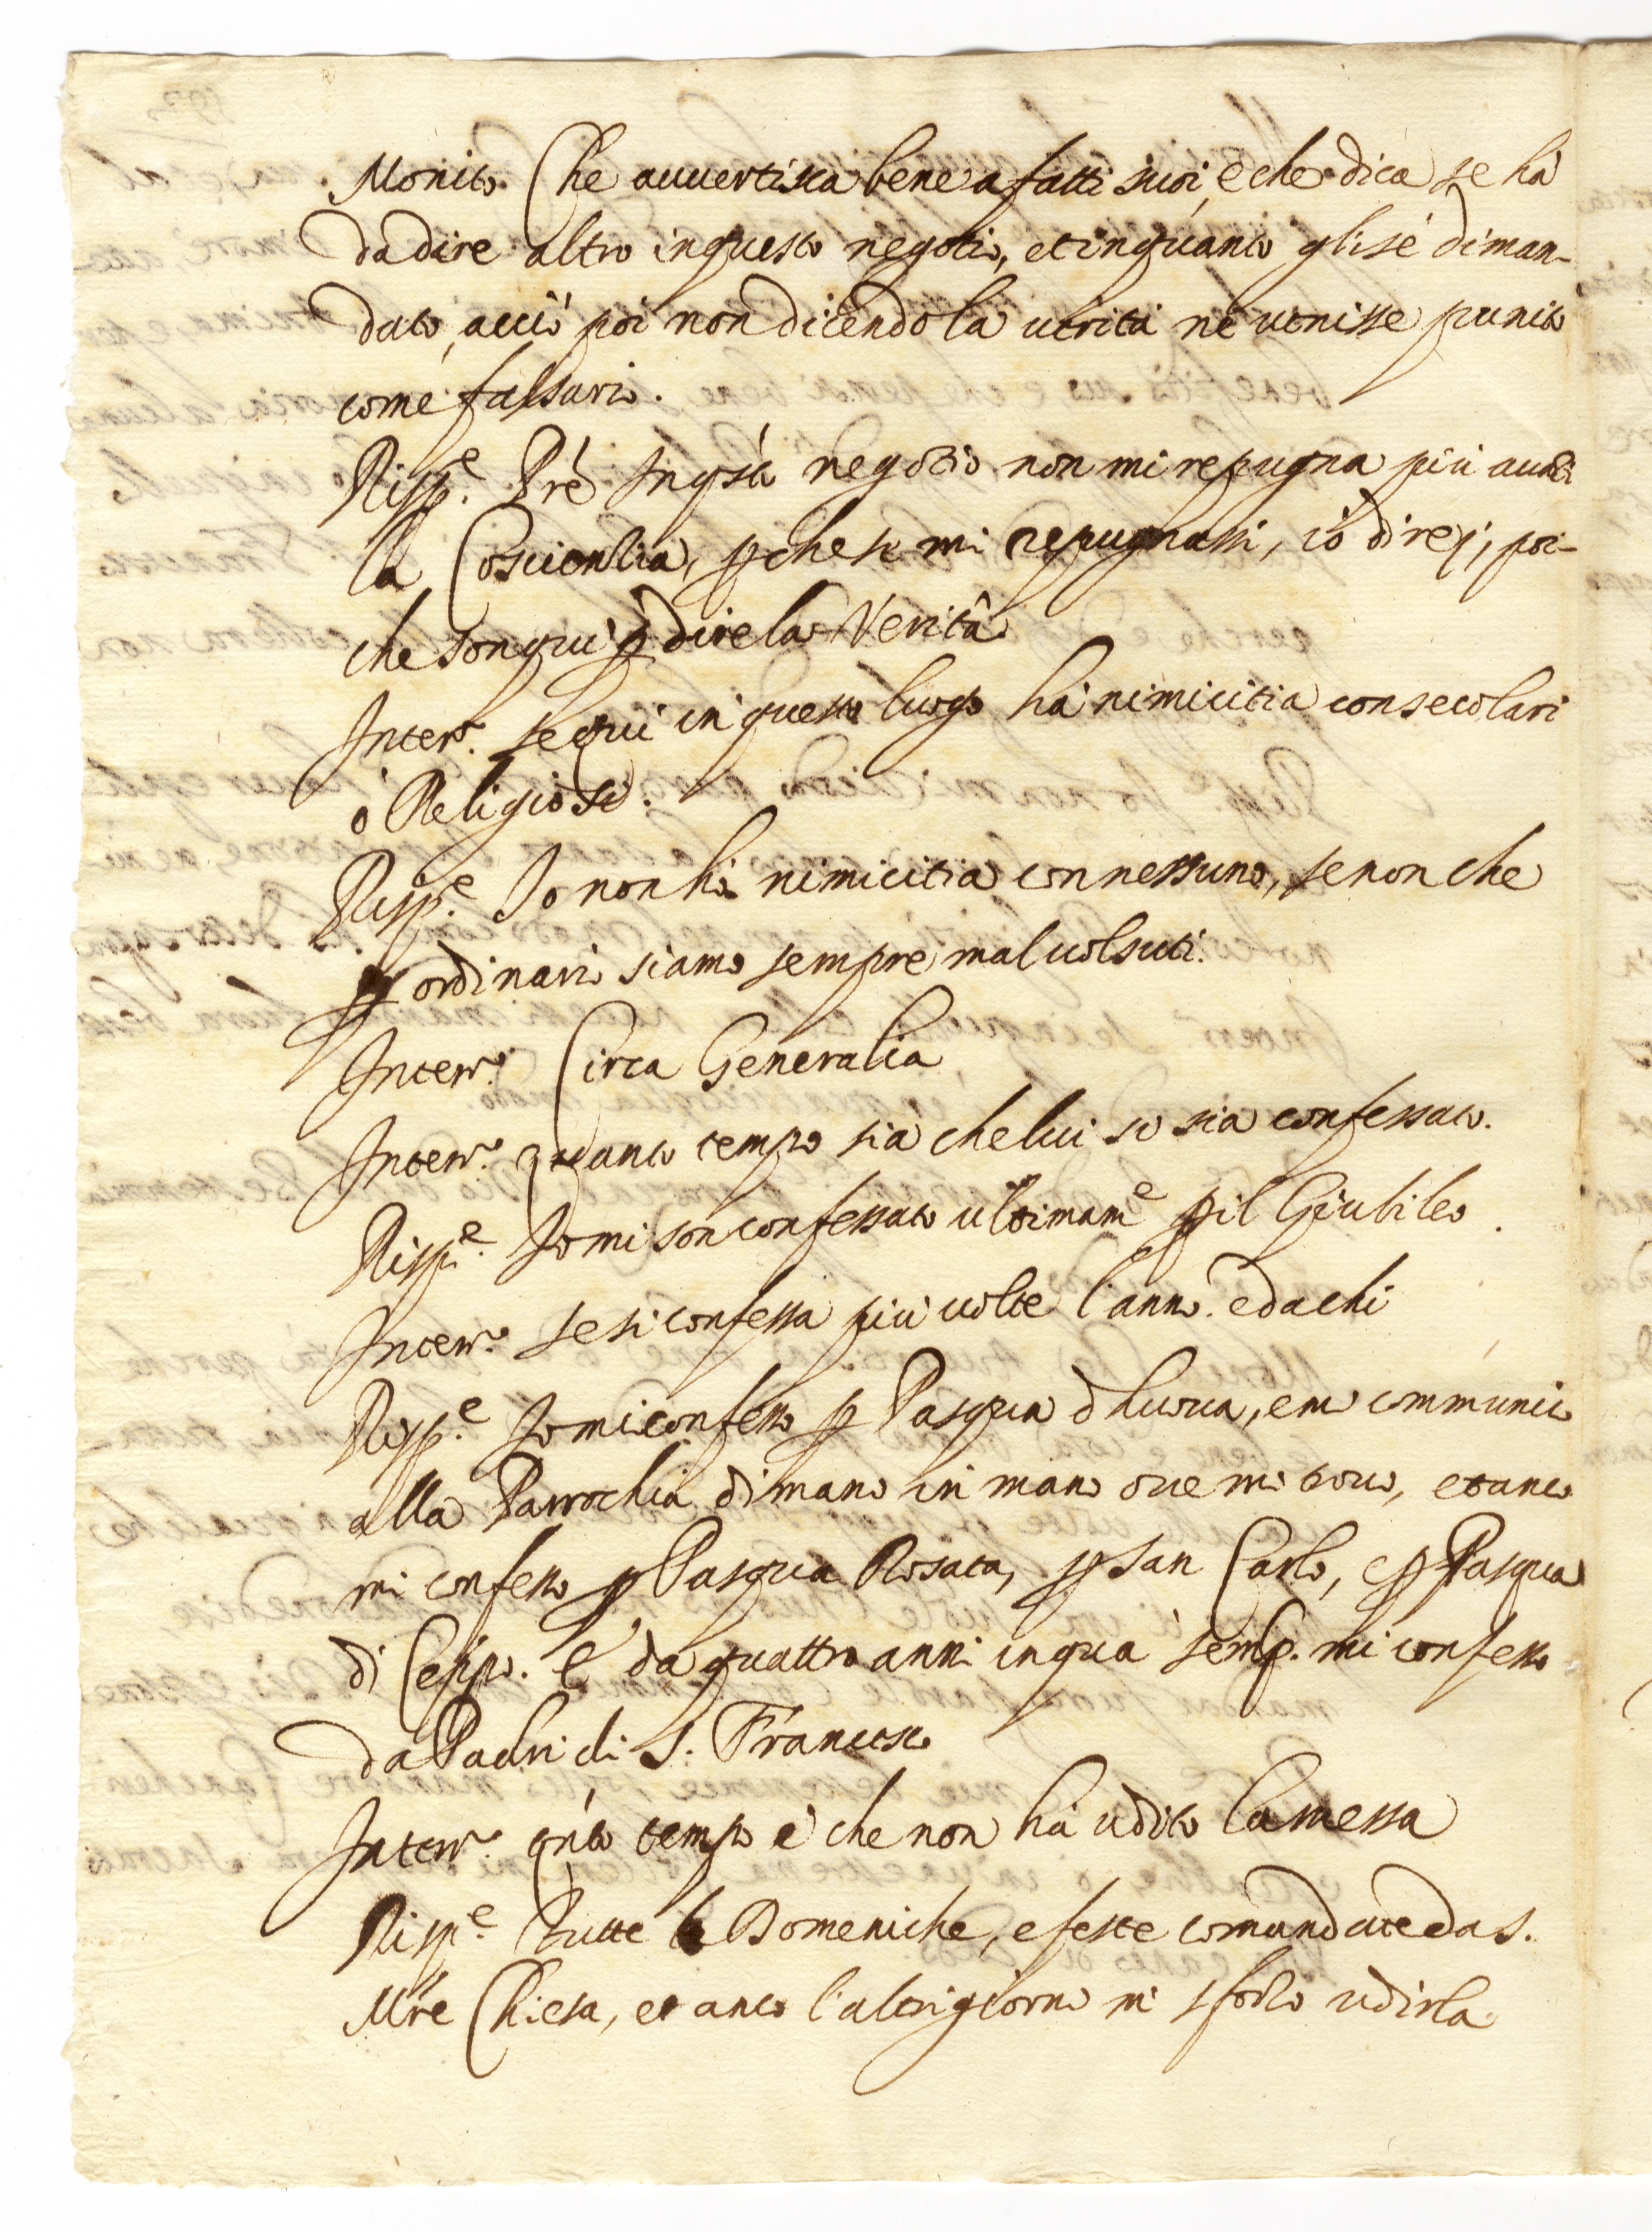 Monito. Che auuertisca bene a fatti suoi, e che dica se hà
da dire altro in questo negotio, et in quanto gli sè diman-
dato, acciò poi non dicendo la uerità nè uenisse punito
come falsario.
Risp.e Prè In qsto negotio non mi repugna più auati
la Coscientia, p che se mi repugnassi, io direj, poi-
che son qui p dire la Verità
Interr.o se qui in questo luogo hà nimicitia con secolari
ò Religiosi.
Risp.e Io non hò nimicitia con nessuno, se non che
p ordinario siamo sempre mal uolsuti.
Interr.o Circa Generalia
Interr.o quanto tempo sia che lui si sia confessato.
Risp.e Io mi son confessato ultimam.e p il Giubileo.
Interr.o se si confessa più uolte l'anno. e da chi
Risp.e Io mi confesso p Pasqua d huoua, e mi communico
alla Parrochia di mano in mano oue mi trouo, et anco
mi confesso p Pasqua Rosata, p San Carlo, e p Pasqua
di Ceppo. E da quattro anni in qua semp. mi confesso
da Padri di S. Francesco
Interr.o qnto tempo è che non hà udito la messa
Risp.e Tutte le Domeniche, e feste comandate da S.
Mre Chiesa, et anco l'altri giorni mi sforzo udirla